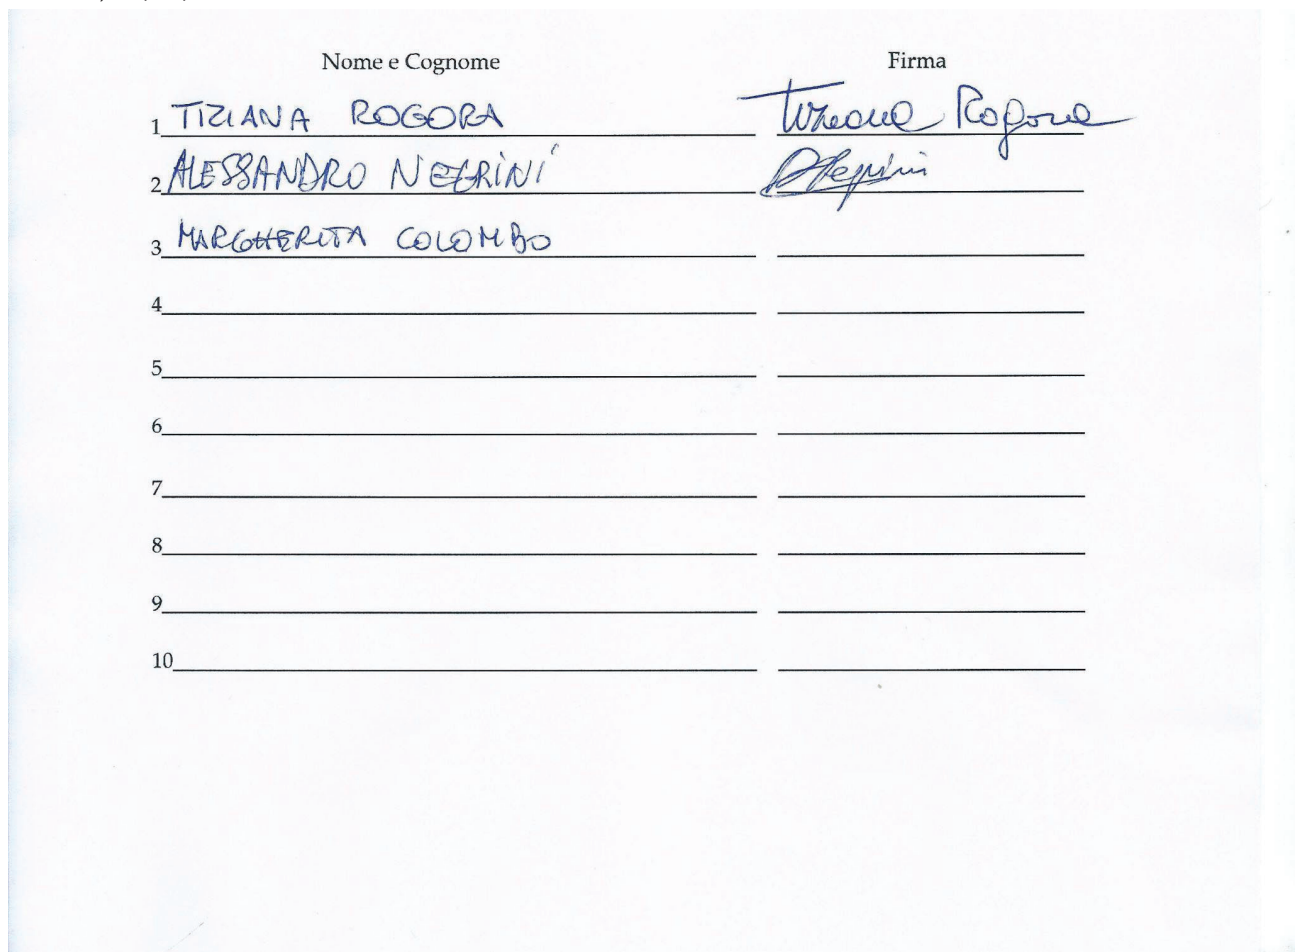 Nome e Cognome Firma
1 TIZIANA ROGORA Tiziana Rogora
2 ALESSANDRO NEGRINI ANegrini
3 MARGHERITA COLOMBO
4
5
6
7
8
9
10